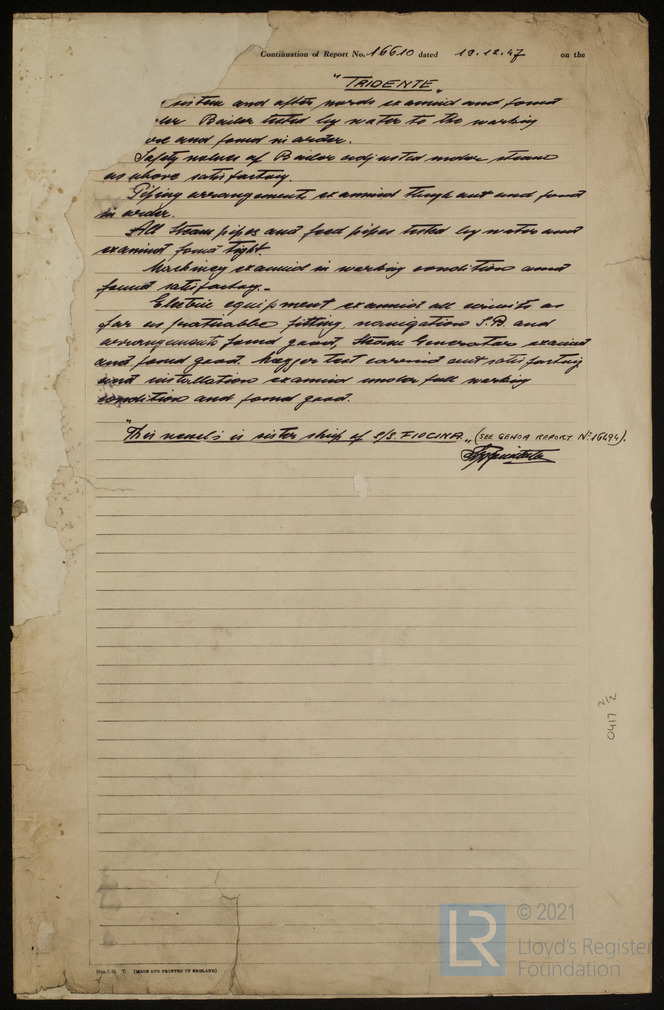 Continuation of Report No. 16610 dated 19.12.47 on the
"TRIDENTE"
system and after wards examined and found
Boiler tested by water to the working
and found in order.
Safety valves of Boiler adjusted under steam
as above satisfactory.
Piping arrangements examined though out and found
in order.
All Steam pipes and feed pipes tested by water and
examined found tight.
Machinery examined in working condition and
found satisfactory.-
Electric equipment examined all circuits as
far as pratuable fitting, navigation S.B. and
arrangements found good, Steam Generator examined
and found good. Megger test carried out satisfactory
and installation examined under full working
condition and found good.
"This vessel's is sister ship of S/S. FIOCINA" (SEE GENOA REPORT No. 16494).
0417 2/2
T. (MADE AND PRINTED IN ENGLAND)
LR
© 2021
Lloyd's Register
Foundation